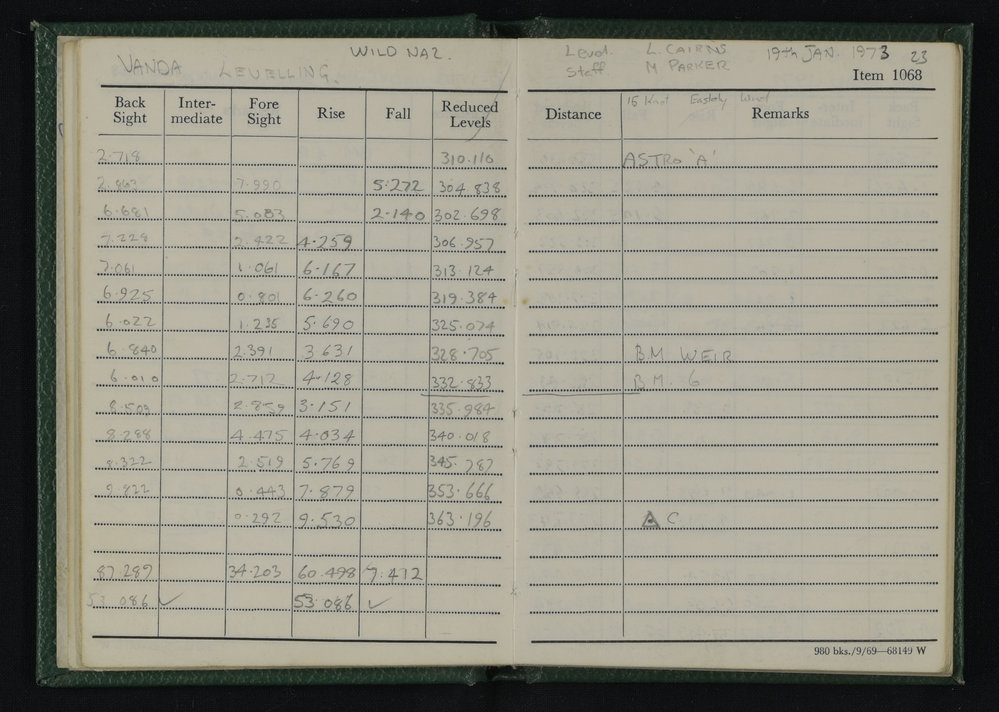 VANDA LEVELLING. WILD NA2.
Back Sight Inter-mediate Fore Sight Rise Fall Reduced Levels
2.718 310.110
2.863 7.990 5.272 304.838
6.681 5.003 2.140 302.698
7.228 2.422 4.259 306.957
7.061 1.061 6.167 313.124
6.925 0.801 6.260 319.384
6.022 1.235 5.690 325.074
6.840 2.391 3.631 328.705
6.010 2.712 4.128 332.833
8.509 2.859 3.151 335.984
8.288 4.475 4.034 340.018
8.322 2.519 5.769 345.787
9.822 0.443 7.879 353.666
0.292 9.530 363.196
87.289 34.203 60.498 7.412
53.086 ✓ 53.086 ✓
Level. L. CAIRNS 19th JAN. 1973 23
Staff M PARKER
Item 1068
15 Knot Easterly Wind
Distance Remarks
ASTRO 'A'
B.M. WEIR
B.M. 6
C
980 bks./9/69—68149 W